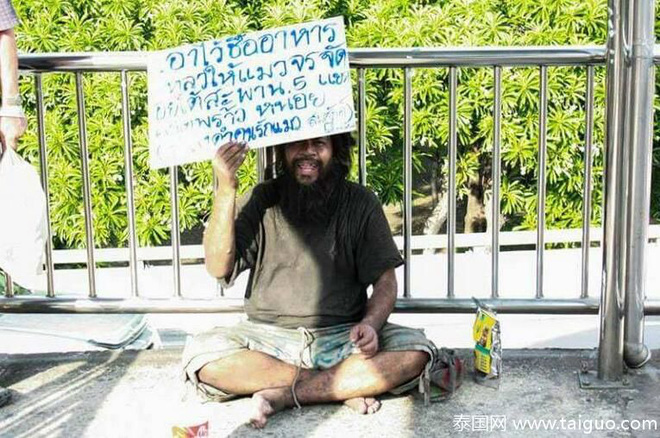 เอาไว้ซื้ออาหาร
ให้แมวจรจัด
อยู่ใต้สะพาน.5 แยก
ลาดพร้าว หน่อย
คนรักแมว
泰国网 www.taiguo.com